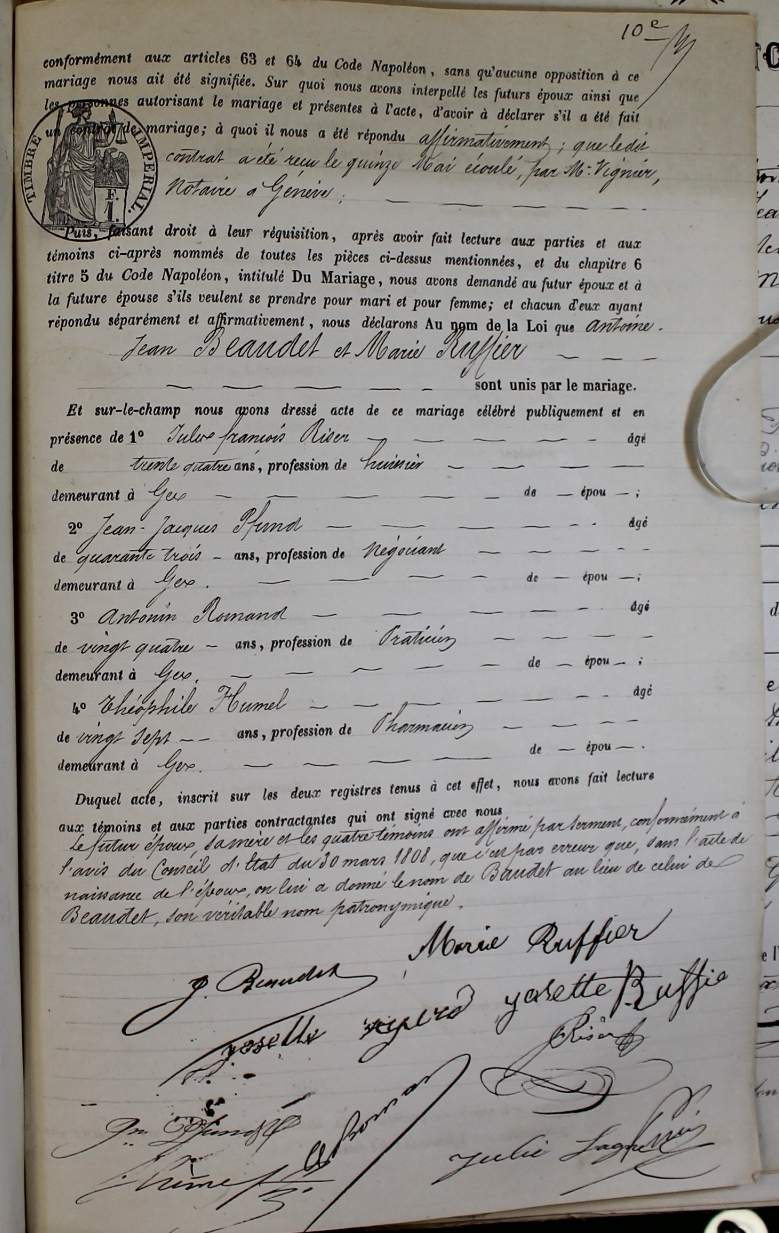 10e
conformément aux articles 63 et 64 du Code Napoléon, sans qu'aucune opposition à ce
mariage nous ait été signifiée. Sur quoi nous avons interpellé les futurs époux ainsi que
les personnes autorisant le mariage et présentes à l'acte, d'avoir à déclarer s'il a été fait
un contrat de mariage; à quoi il nous a été répondu affirmativement; que le dit
contrat a été reçu le quinze Mai écoulé, par Mr. Vignier,
Notaire a Genève;
TIMBRE IMPERIAL.
F.
1.
Puis, faisant droit à leur réquisition, après avoir fait lecture aux parties et aux
témoins ci-après nommés de toutes les pièces ci-dessus mentionnées, et du chapitre 6
titre 5 du Code Napoléon, intitulé Du Mariage, nous avons demandé au futur époux et à
la future épouse s'ils veulent se prendre pour mari et pour femme; et chacun d'eux ayant
répondu séparément et affirmativement, nous déclarons Au nom de la Loi que Antoine-
Jean Beaudet et Marie Ruffier — — —
— — — — — — — sont unis par le mariage.
Et sur-le-champ nous avons dressé acte de ce mariage célébré publiquement et en
présence de 1° Jules françois Riser — — — — — âgé
de trente quatre ans, profession de huissier — — — —
demeurant à Gex — — — — — — de — épou — ;
2° Jean-Jacques Pfund — — — — — âgé
de quarante trois — ans, profession de Négociant — — — —
demeurant à Gex. — — — — — de — épou — ;
3° Antonin Romand — — — — — âgé
de vingt quatre — ans, profession de Praticien — — — —
demeurant à Gex. — — — — — de — épou — ;
4° Théophile Humel — — — — — âgé
de vingt sept — — ans, profession de Pharmacien — — — —
demeurant à Gex. — — — — — de — épou — .
Duquel acte, inscrit sur les deux registres tenus à cet effet, nous avons fait lecture
aux témoins et aux parties contractantes qui ont signé avec nous
Le futur époux, sa mère et les quatre témoins ont affirmé par serment, conformément à
l'avis du Conseil d'Etat du 30 mars 1808, que c'est par erreur que, dans l'acte de
naissance de l'époux, on lui a donné le nom de Baudet au lieu de celui de
Beaudet, son véritable nom patronymique.
Marie Ruffier
J. Beaudet
josette Ruffie
josette
JRiser
Romand
Julie